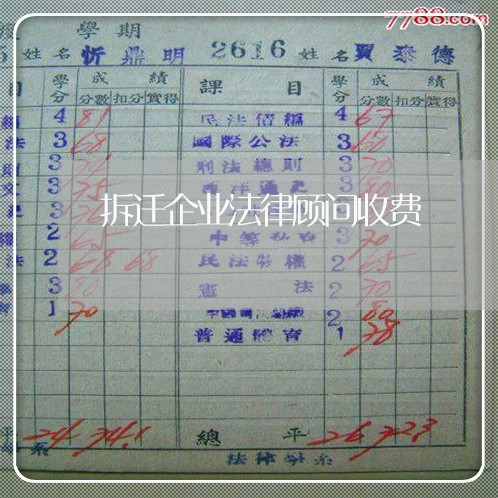 7788.com
學期
姓名 忻鼎明 2616 姓名 賈泰德
目 學分 成績 課目 學分 成績
分數 扣分 實得 分數 扣分 實得
4 81 民法債編 4 67
法 3 68 國際公法 3 60
3 刑法總則 3 70
3 75 3 80
拆迁企业法律顾问收费
2 65 3 70
法 2 68 68 民法物權 2 65
3 80 憲法 2 70
1 70 2 80
普通體育 1 78
平 24 74.1 總平 26 72.3
系 法律學系